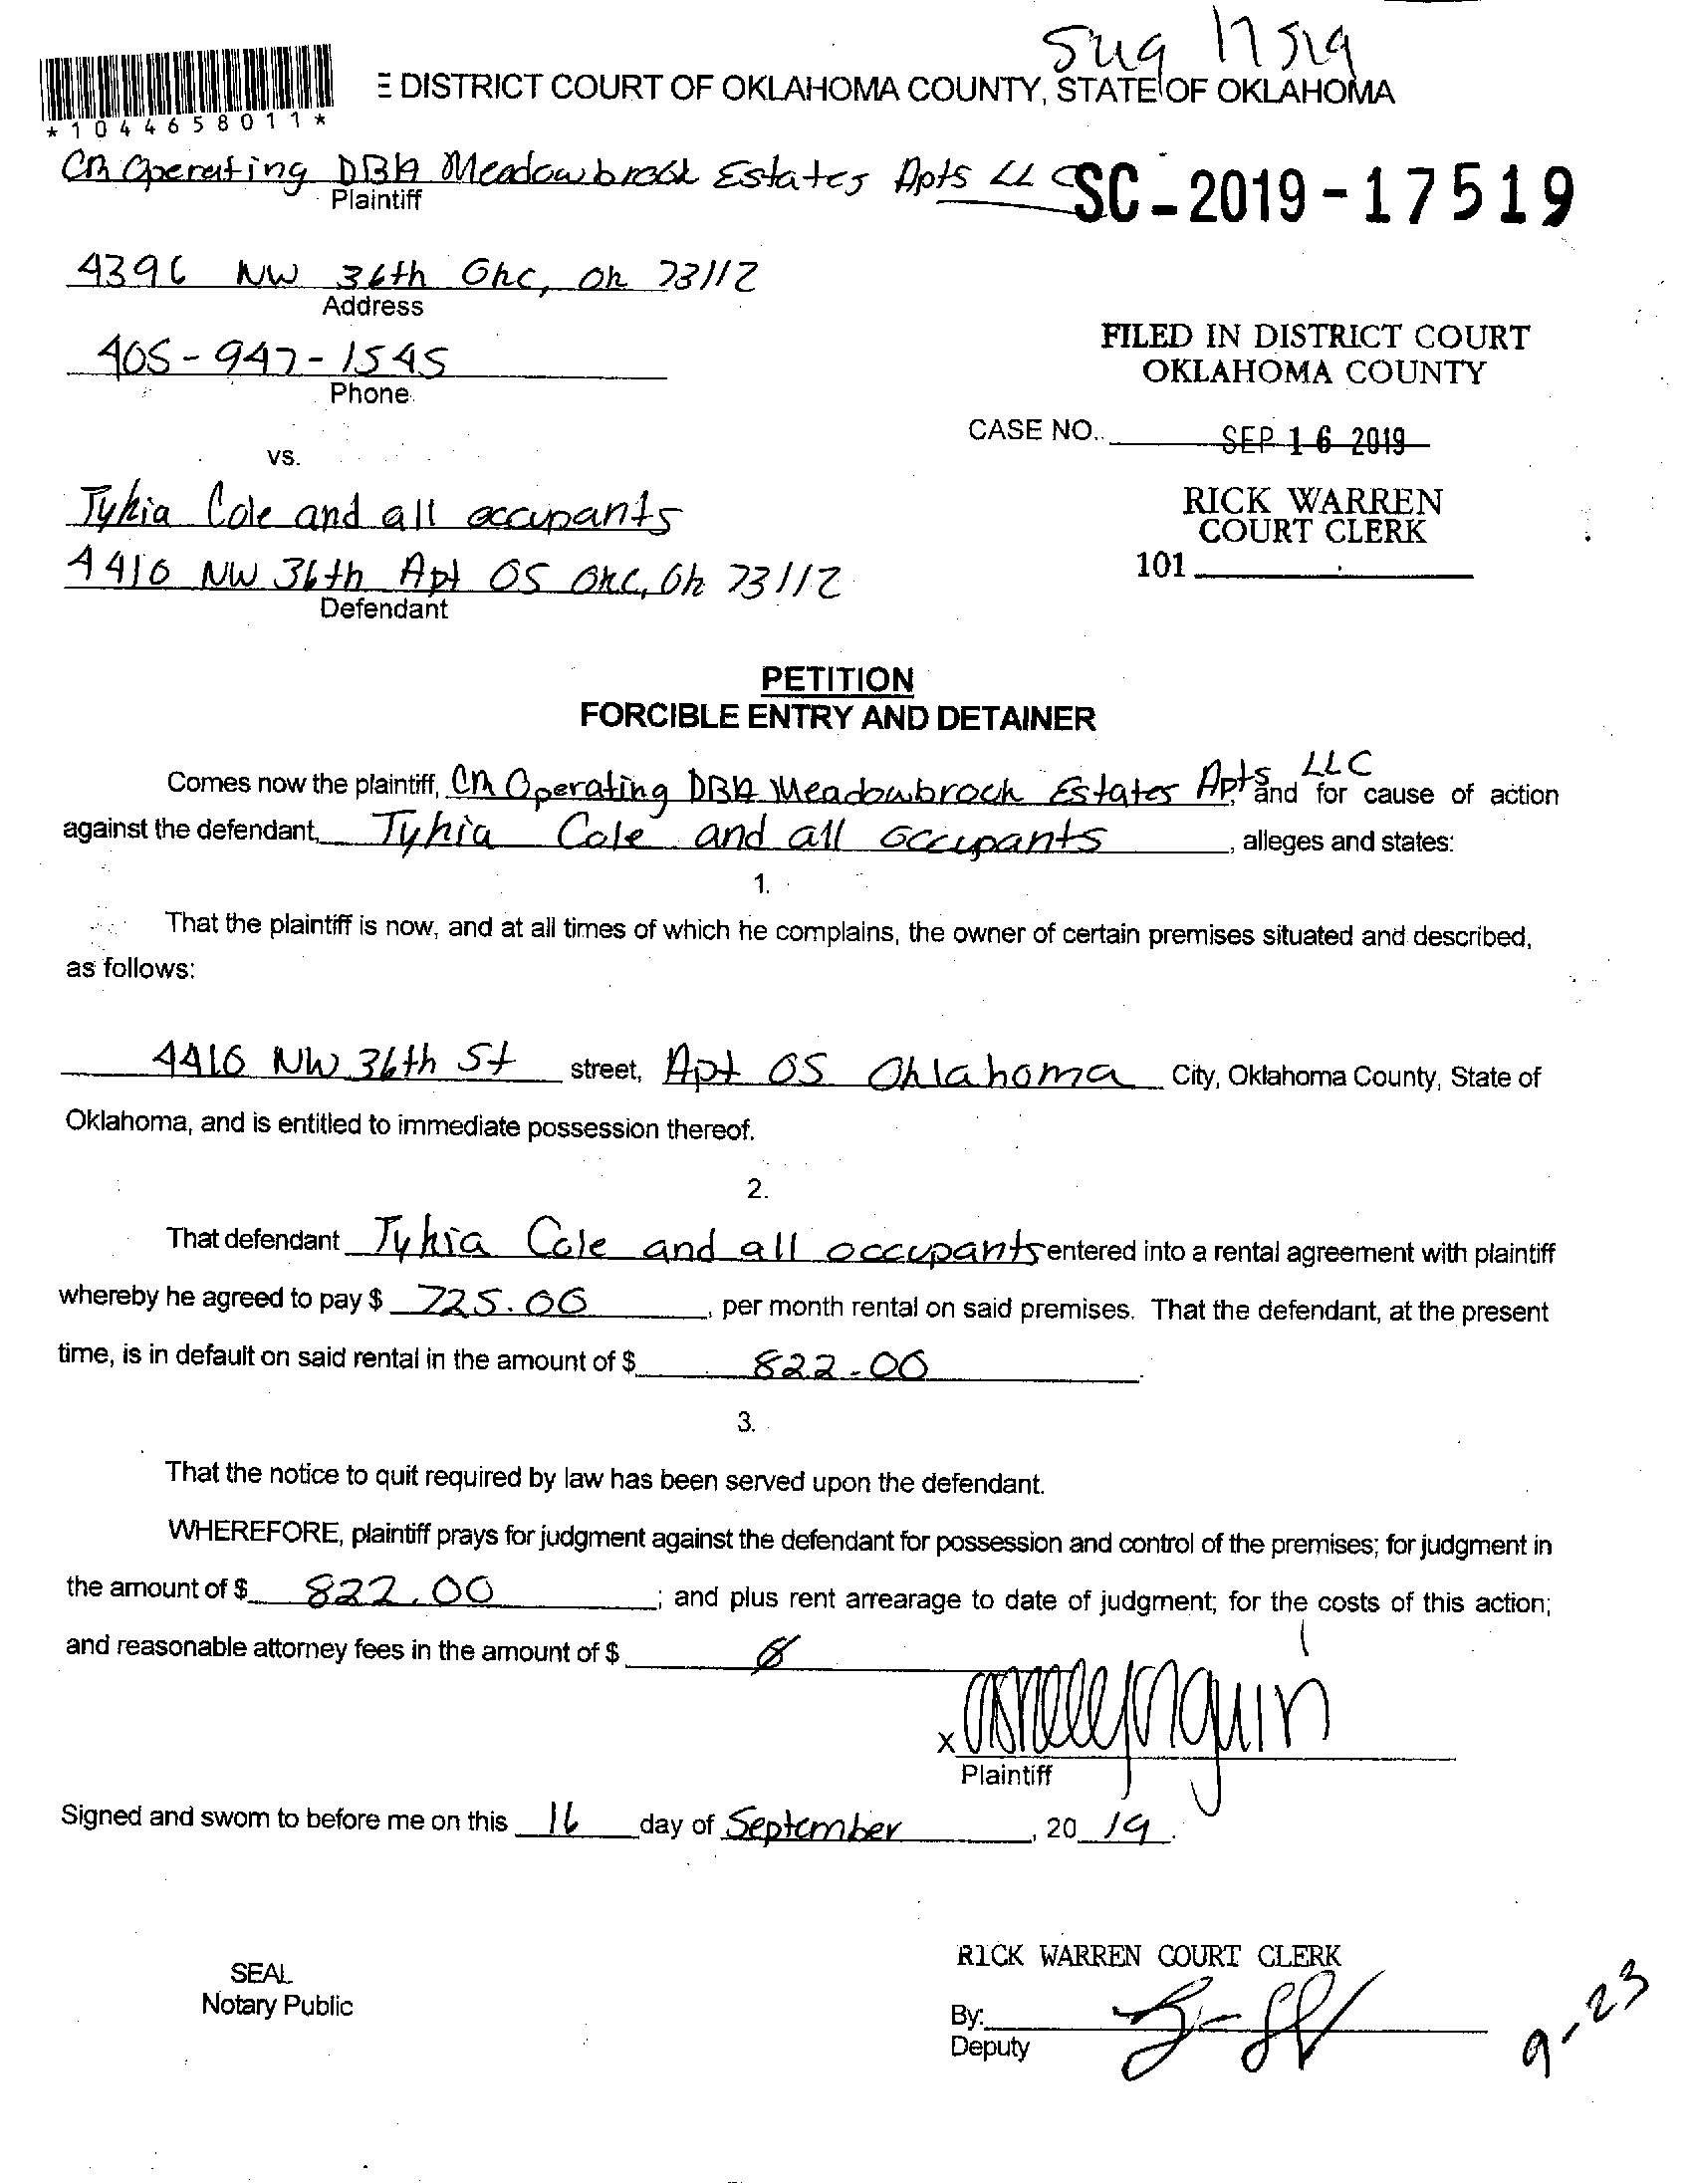 Sug 17519
E DISTRICT COURT OF OKLAHOMA COUNTY, STATE OF OKLAHOMA
*1044658011*
Operating DBA Meadowbrook Estates Apts LLC
SC-2019-17519
Plaintiff
4396 NW 36th Okc, Ok 73112
Address
405-947-1545
Phone
FILED IN DISTRICT COURT
OKLAHOMA COUNTY
CASE NO. SEP 16 2019
vs.
RICK WARREN
COURT CLERK
101
Tykia Cole and all occupants
4410 NW 36th Apt 05 Okc, Ok 73112
Defendant
PETITION
FORCIBLE ENTRY AND DETAINER
Comes now the plaintiff, Operating DBA Meadowbrook Estates Apts LLC, and for cause of action
against the defendant, Tykia Cole and all occupants, alleges and states:
1.
That the plaintiff is now, and at all times of which he complains, the owner of certain premises situated and described,
as follows:
4410 NW 36th St street, Apt 05 Oklahoma City, Oklahoma County, State of
Oklahoma, and is entitled to immediate possession thereof.
2.
That defendant Tykia Cole and all occupants entered into a rental agreement with plaintiff
whereby he agreed to pay $ 725.00, per month rental on said premises. That the defendant, at the present
time, is in default on said rental in the amount of $ 822.00.
3.
That the notice to quit required by law has been served upon the defendant.
WHEREFORE, plaintiff prays for judgment against the defendant for possession and control of the premises; for judgment in
the amount of $ 822.00; and plus rent arrearage to date of judgment; for the costs of this action;
and reasonable attorney fees in the amount of $ 0
x
Plaintiff
Signed and sworn to before me on this 16 day of September, 20 19.
SEAL
Notary Public
RICK WARREN COURT CLERK
By:
Deputy
9-23